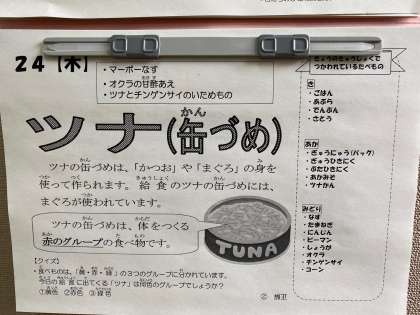 24【木】
・マーボーなす
・オクラの甘酢あえ
・ツナとチンゲンサイのいためもの
ツナ(缶づめ)
ツナの缶づめは、「かつお」や「まぐろ」の身を
使って作られます。給食のツナの缶づめには、
まぐろが使われています。
ツナの缶づめは、体をつくる
赤のグループの食べ物です。
TUNA
【クイズ】
・食べものは、「黄・赤・緑」の3つのグループに分かれています。
今日の給食に出てくる「ツナ」は何色のグループでしょうか?
①黄色 ②赤色 ③緑色
きゅうしょくで
つかわれているたべもの
き
・ごはん
・あぶら
・でんぷん
・さとう
あか
・ぎゅうにゅう(パック)
・ぎゅうひきにく
・ぶたひきにく
・あかみそ
・ツナかん
みどり
・なす
・たまねぎ
・にんじん
・ピーマン
・しょうが
・オクラ
・チンゲンサイ
・コーン